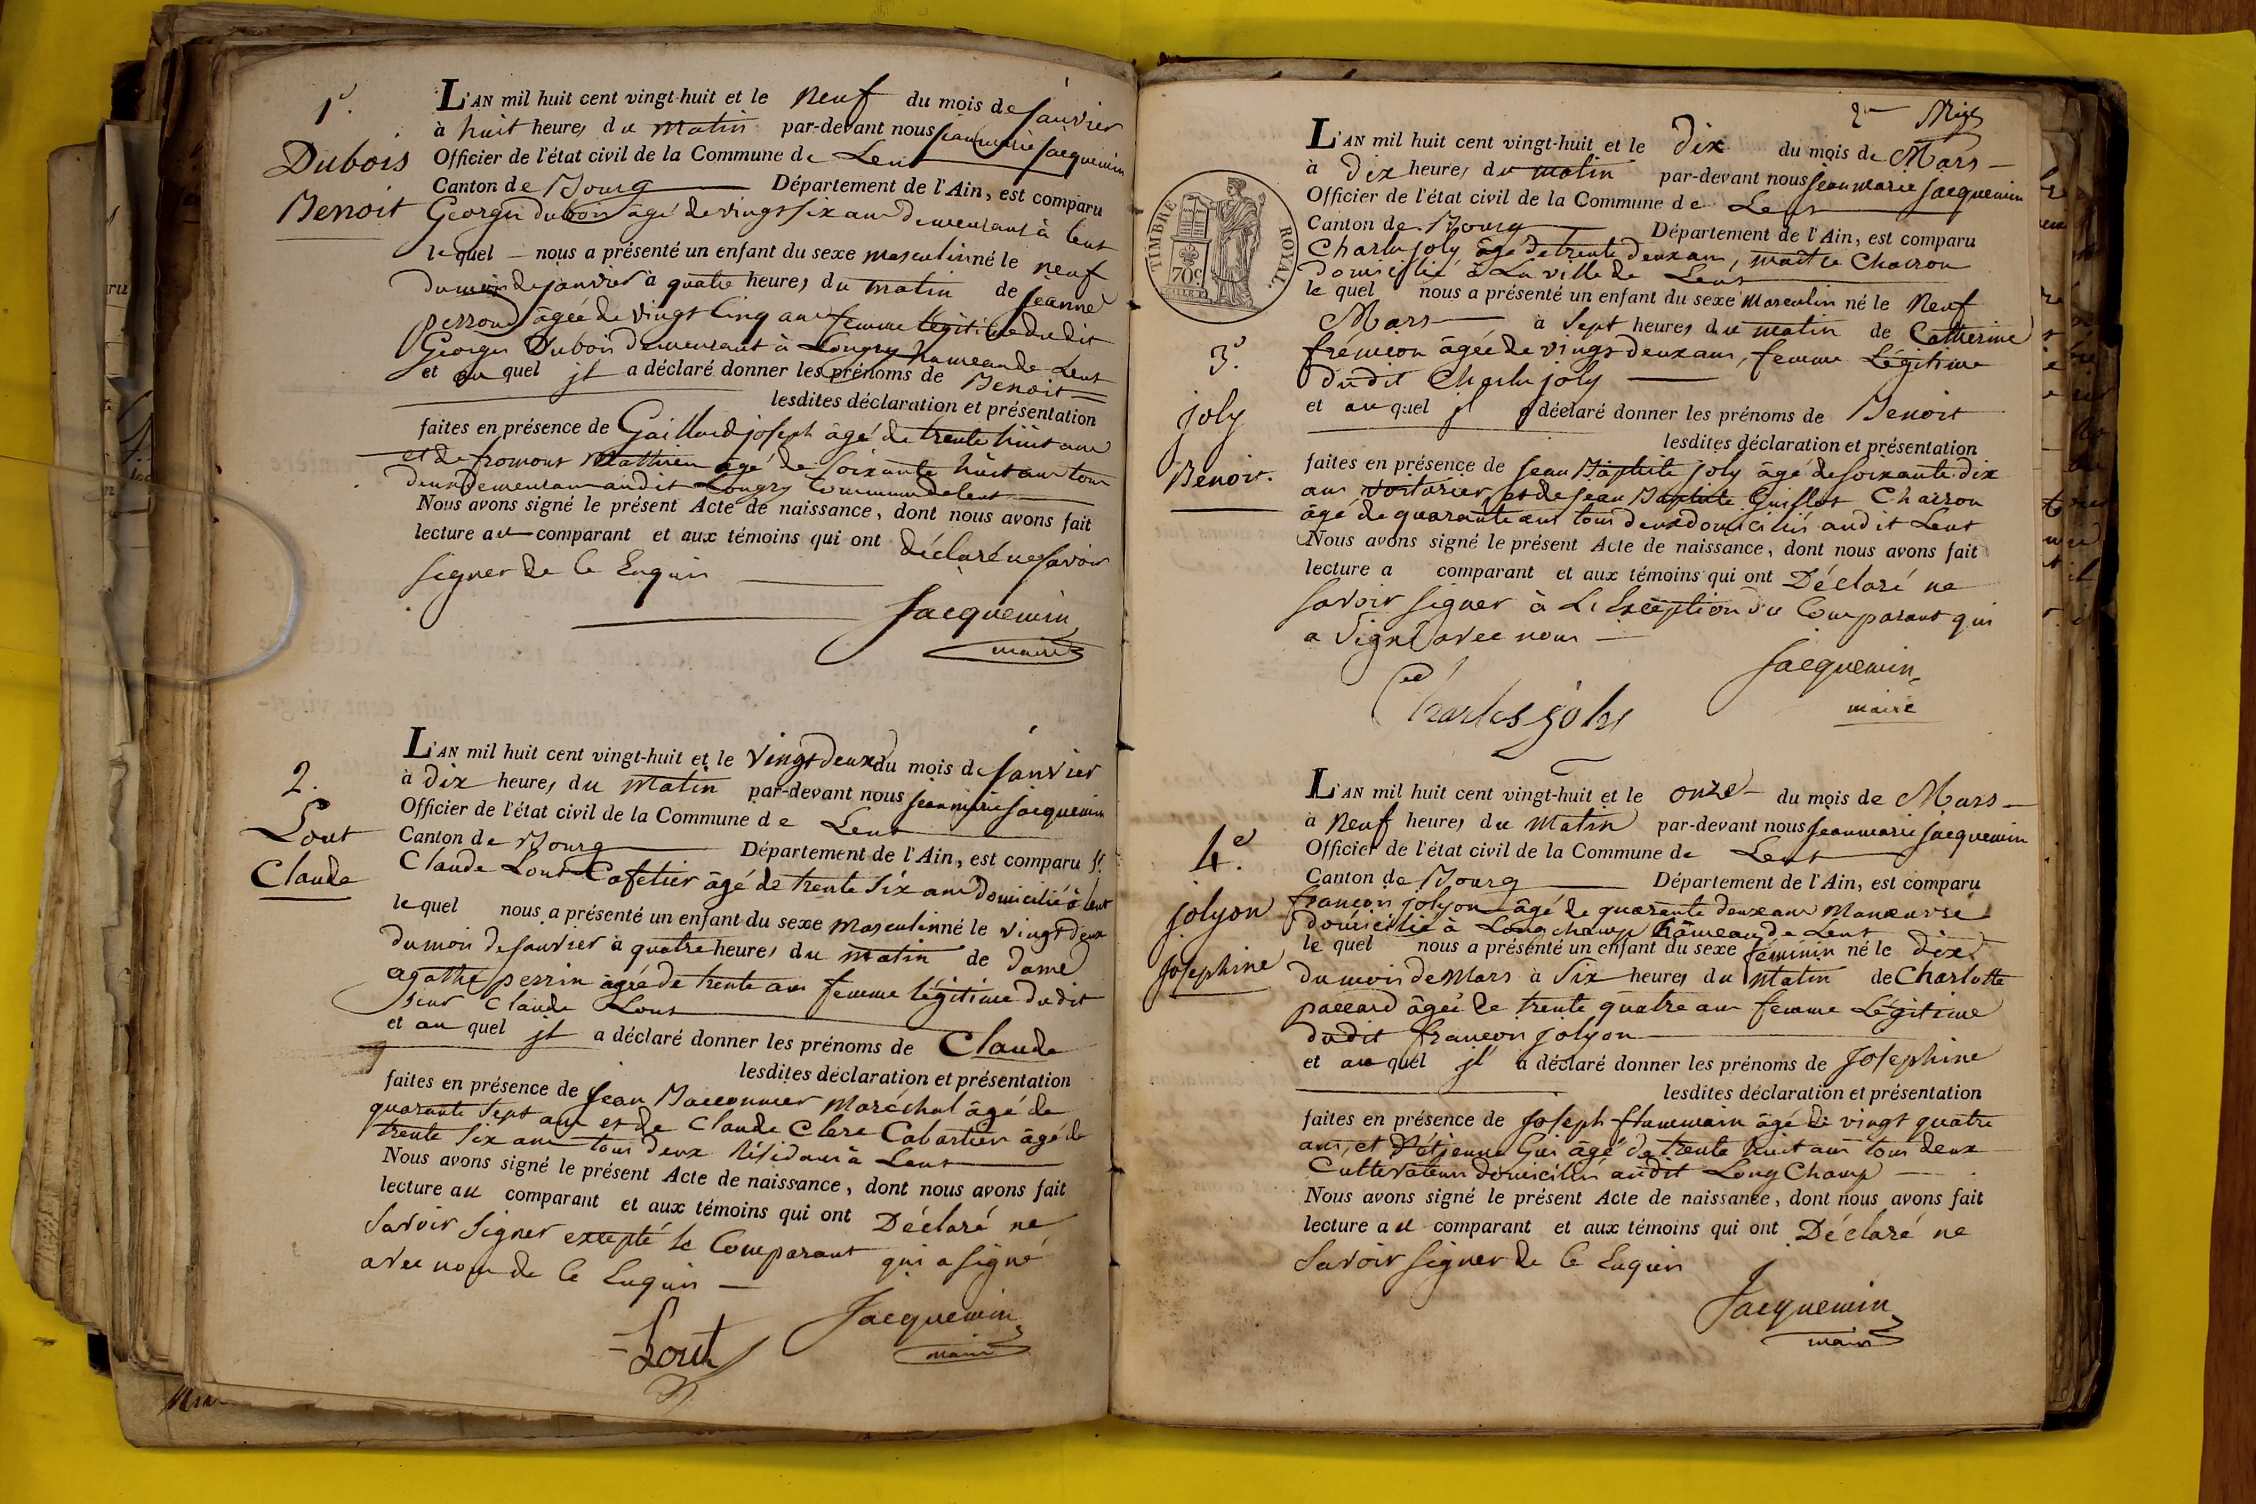 1e.
Dubois
Benoit
L'AN mil huit cent vingt-huit et le neuf du mois de janvier
à huit heures du matin par-devant nous jean marie jacquemin
Officier de l'état civil de la Commune de Lent
Canton de Bourg Département de l'Ain, est comparu
Georges dubois âgé de vingt six ans demeurant à Lent
lequel nous a présenté un enfant du sexe masculin né le neuf
du mois de janvier à quatre heures du matin de jeanne
perroud âgée de vingt cinq ans femme légitime dudit
Georges Dubois demeurant à Longry hameau de Lent
et au quel il a déclaré donner les prénoms de Benoit
lesdites déclaration et présentation
faites en présence de Gaillard joseph âgé de trente huit ans
et de fromont Mathieu âgé de soixante huit ans tous
deux demeurant audit Longry Commune de Lent
Nous avons signé le présent Acte de naissance, dont nous avons fait
lecture au comparant et aux témoins qui ont déclaré ne savoir
signer de ce Enquis
Jacquemin
maire
2.
Lout
Claude
L'AN mil huit cent vingt-huit et le vingt deux du mois de janvier
à dix heures du matin par-devant nous jean marie jacquemin
Officier de l'état civil de la Commune de Lent
Canton de Bourg Département de l'Ain, est comparu Sr.
Claude Lout Cafetier âgé de trente six ans domicilié à Lent
lequel nous a présenté un enfant du sexe masculin né le vingt deux
du mois de janvier à quatre heures du matin de dame
agathe perrin âgée de trente ans femme légitime dudit
sieur Claude Lout
et au quel il a déclaré donner les prénoms de Claude
lesdites déclaration et présentation
faites en présence de jean Maréchal âgé de
quarante sept ans et de Claude Clerc Cabartier âgé de
trente six ans tous deux résidans à Lent
Nous avons signé le présent Acte de naissance, dont nous avons fait
lecture au comparant et aux témoins qui ont Déclaré ne
savoir signer excepté le Comparant qui a signé
avec nous de ce Enquis
Lout
Jacquemin
maire
TIMBRE ROYAL.
70c.
3e.
joly
Benoit.
L'AN mil huit cent vingt-huit et le dix du mois de Mars
à dix heures du matin par-devant nous jean marie jacquemin
Officier de l'état civil de la Commune de Lent
Canton de Bourg Département de l'Ain, est comparu
Charles joly âgé de trente deux ans, maitre Charron
Domicilié à La ville de Lent
le quel nous a présenté un enfant du sexe masculin né le neuf
Mars à sept heures du matin de Catherine
frémion âgée de vingt deux ans, femme Légitime
dudit Charles joly
et au quel il a déclaré donner les prénoms de Benoit
lesdites déclaration et présentation
faites en présence de jean Baptiste joly âgé de soixante dix
ans voiturier, et de jean Baptiste Guillot Charron
âgé de quarante ans tous deux domiciliés audit Lent
Nous avons signé le présent Acte de naissance, dont nous avons fait
lecture a comparant et aux témoins qui ont Déclaré ne
savoir signer à L'Exception du Comparant qui
a Signé avec nous
Charles joly
Jacquemin,
maire
4e.
jolyon
Josephine
L'AN mil huit cent vingt-huit et le onze du mois de Mars
à neuf heures du matin par-devant nous jean marie jacquemin
Officier de l'état civil de la Commune de Lent
Canton de Bourg Département de l'Ain, est comparu
françois jolyon âgé de quarante deux ans Manœuvre
domicilié à Longchamp hameau de Lent
le quel nous a présenté un enfant du sexe féminin né le dix
du mois de Mars à Six heures du matin de Charlotte
paccard âgée de trente quatre ans femme Légitime
dudit françois jolyon
et au quel il a déclaré donner les prénoms de Josephine
lesdites déclaration et présentation
faites en présence de Joseph âgé de vingt quatre
ans, et âgé de trente huit ans tous deux
Cultivateurs domiciliés audit Long Champ
Nous avons signé le présent Acte de naissance, dont nous avons fait
lecture au comparant et aux témoins qui ont Déclaré ne
Savoir signer de ce Enquis
Jacquemin
maire